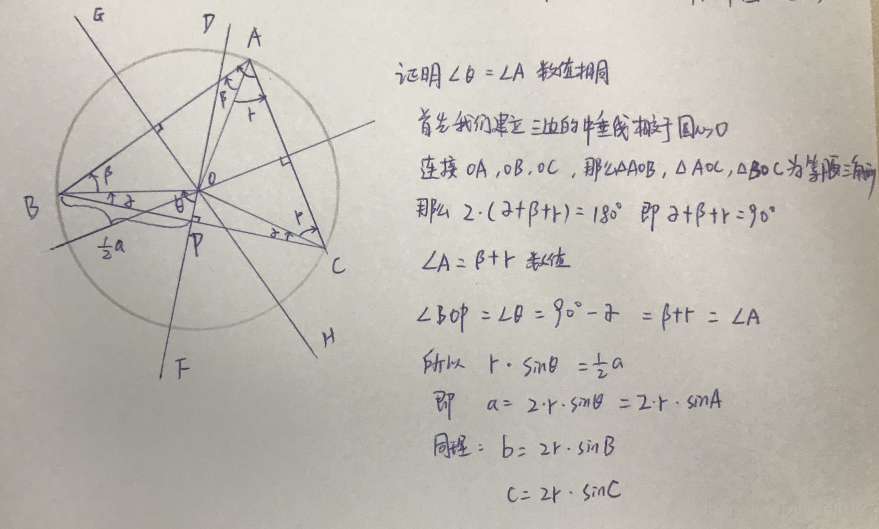 G
D
A
β
r
β
O
B
∂
θ
r
½a
P
∂
C
H
F
证明∠θ = ∠A 数值相同
首先我们建立三边的中垂线相交于圆心O
连接OA, OB, OC, 那么△AOB, △AOC, △BOC为等腰三角形
那么 2·(∂+β+r) = 180° 即 ∂+β+r = 90°
∠A = β+r 数值
∠BOP = ∠θ = 90° - ∂ = β+r = ∠A
所以 r · sinθ = ½a
即 a = 2·r·sinθ = 2·r·sinA
同理: b = 2r·sinB
c = 2r·sinC